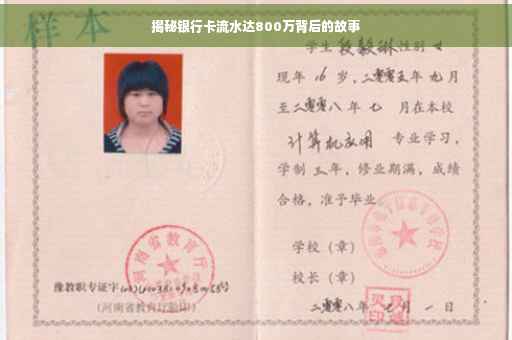 揭秘银行卡流水达800万背后的故事
样本
学生段毅琳性别女
现年16岁,二零零五年九月
至二零零八年七月在本校
计算机应用 专业学习,
学制三年,修业期满,成绩
合格,准予毕业。
学校(章)
校长(章)
二零零八年七月一日
河南省教育厅
豫教职专证字
(河南省教育厅验印)